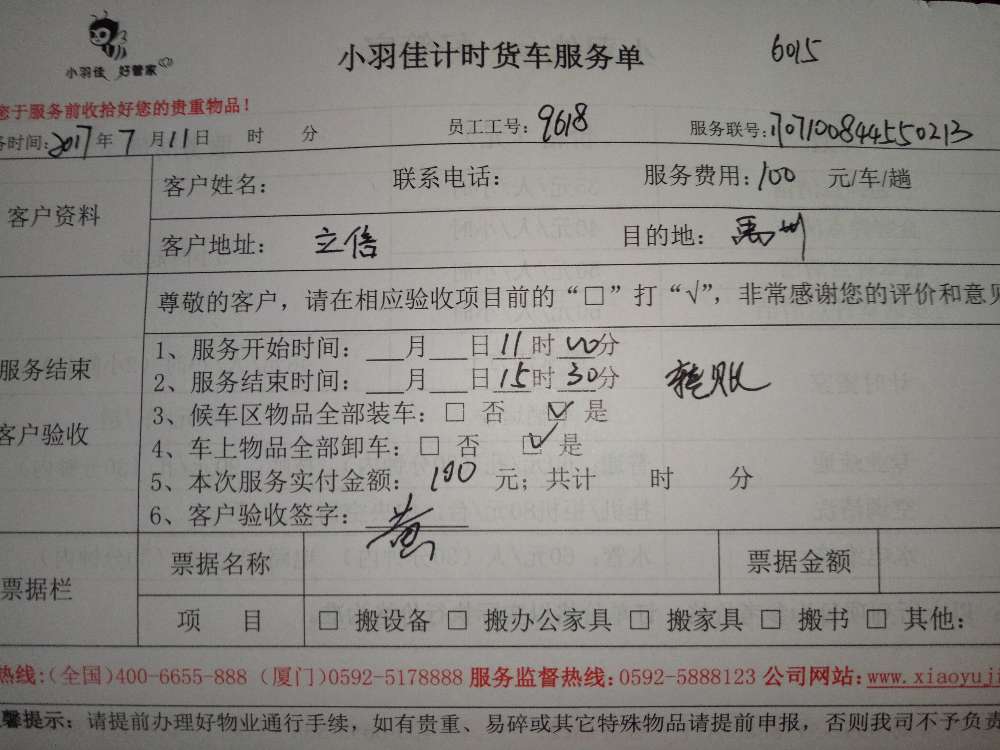 小羽佳 好管家
小羽佳计时货车服务单 6015
您于服务前收拾好您的贵重物品！
务时间：2017年7月11日 时 分 员工工号：9618 服务联号：170710084455 0213
客户资料
客户姓名： 联系电话： 服务费用：100 元/车/趟
客户地址： 立信 目的地： 禹州
尊敬的客户，请在相应验收项目前的“□”打“√”，非常感谢您的评价和意见
服务结束
客户验收
1、服务开始时间：___月___日11时00分
2、服务结束时间：___月___日15时30分
3、候车区物品全部装车：□ 否 ☑ 是
4、车上物品全部卸车：□ 否 ☑ 是
5、本次服务实付金额：100 元；共计 时 分
6、客户验收签字：黄
票据栏
票据名称 票据金额
项 目 □ 搬设备 □ 搬办公家具 □ 搬家具 □ 搬书 □ 其他：
热线：(全国)400-6655-888 (厦门)0592-5178888 服务监督热线：0592-5888123 公司网站：www.xiaoyuji
馨提示：请提前办理好物业通行手续，如有贵重、易碎或其它特殊物品请提前申报，否则我司不予负责